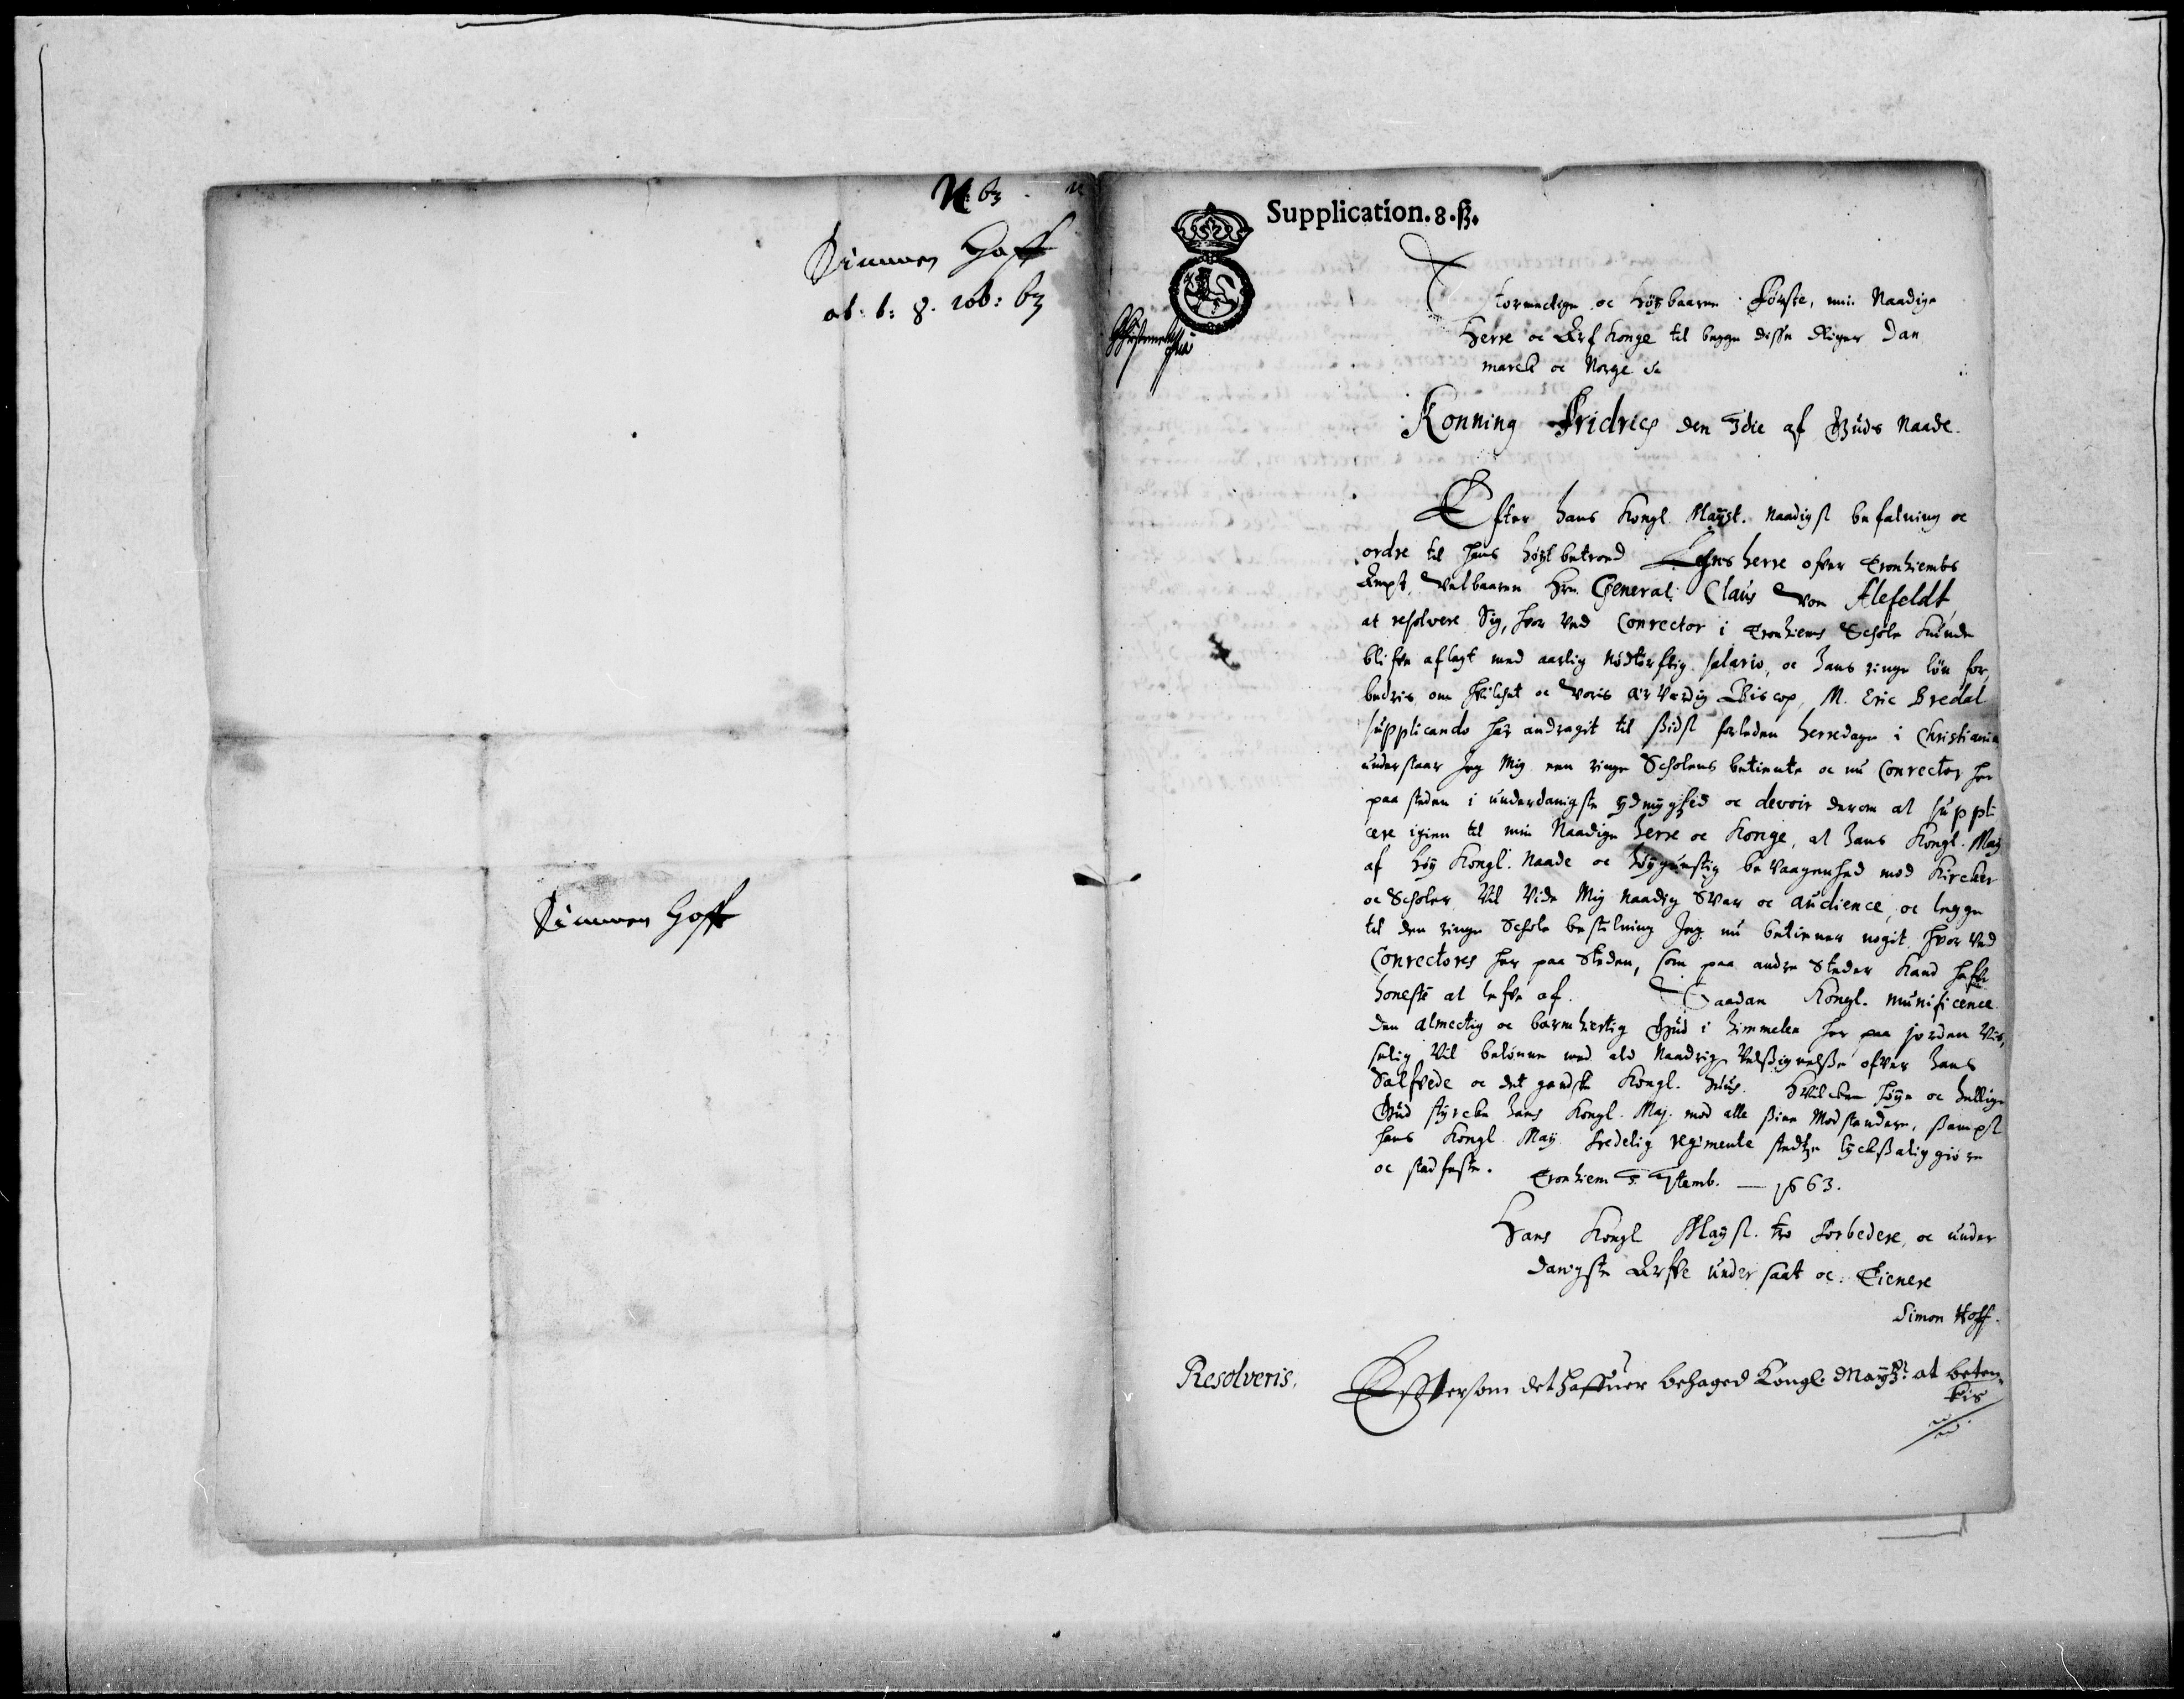 N: 63
Simmen Hoff
ab: 6: 8. 10b: 63
Simmen Hoff
Supplication. 8. ß.
Stormectige oc høybaarne Første, min Naadige
Herre oc Erf Konge til begge disse Riger Dan
marck oc Norge etc
Konning Fridrich den 3die af Guds Naade.
Efter hans Kongl. Mayst. naadigst befalning oc
ordre til hans høyt betroed Lehns herre ofver Tronhiembs
Ampt, Velbaaren Hr. General Claus von Alefeldt,
at resolvere Sig, hvor ved Conrector i Tronhiems Schole kunde
blifve aflagt med aarlig nødtørftig salario, oc hans ringe løn for,
bedris, om hvilchet oc voris ærværdig Biscop, M. Eric Bredal
supplicando har andragit til sidst forleden herredage i Christiania
understaar Jeg Mig een ringe Scholens betiente oc nu Conrector her
paa steden i underdanigste ydmyghed oc devoir derom at suppli
cere igien til min Naadige Herre oc Konge, at hans Kongl. May
af høy Kongl. Naade oc høygunstig bevaagenhed mod Kircker
oc Scholer vil vide Mig naadig svar oc audience, oc legge
til den ringe Schole bestilning Jeg nu betiener nogit, hvor ved
Conrectores her paa Steden, som paa andre Steder kand hafve
honeste at lefve af. Saadan Kongl. munificence
den almectig oc barmhiertig Gud i himmelen her paa jorden vis,
selig vil belønne med ald Naadrig Velsignelsse ofver hans
Salfvede oc det gandske Kongl. Huus. Hvilcken høye oc hellige
Gud styrcke hans Kongl. May. mod alle sine Modstandere, sampt
hans Kongl. May. fredelig regimente stedtze lycksalig giøre
oc stadfeste. Tronhiem 3. 7temb. — 1663.
Hans Kongl Mayst. tro forbedere, oc under
danigste Erfve undersaat oc Tienere
Simon Hoff.
Resolveris.
Effttersom det haffuer behaged Kongl. Maytt: at beten-
kis